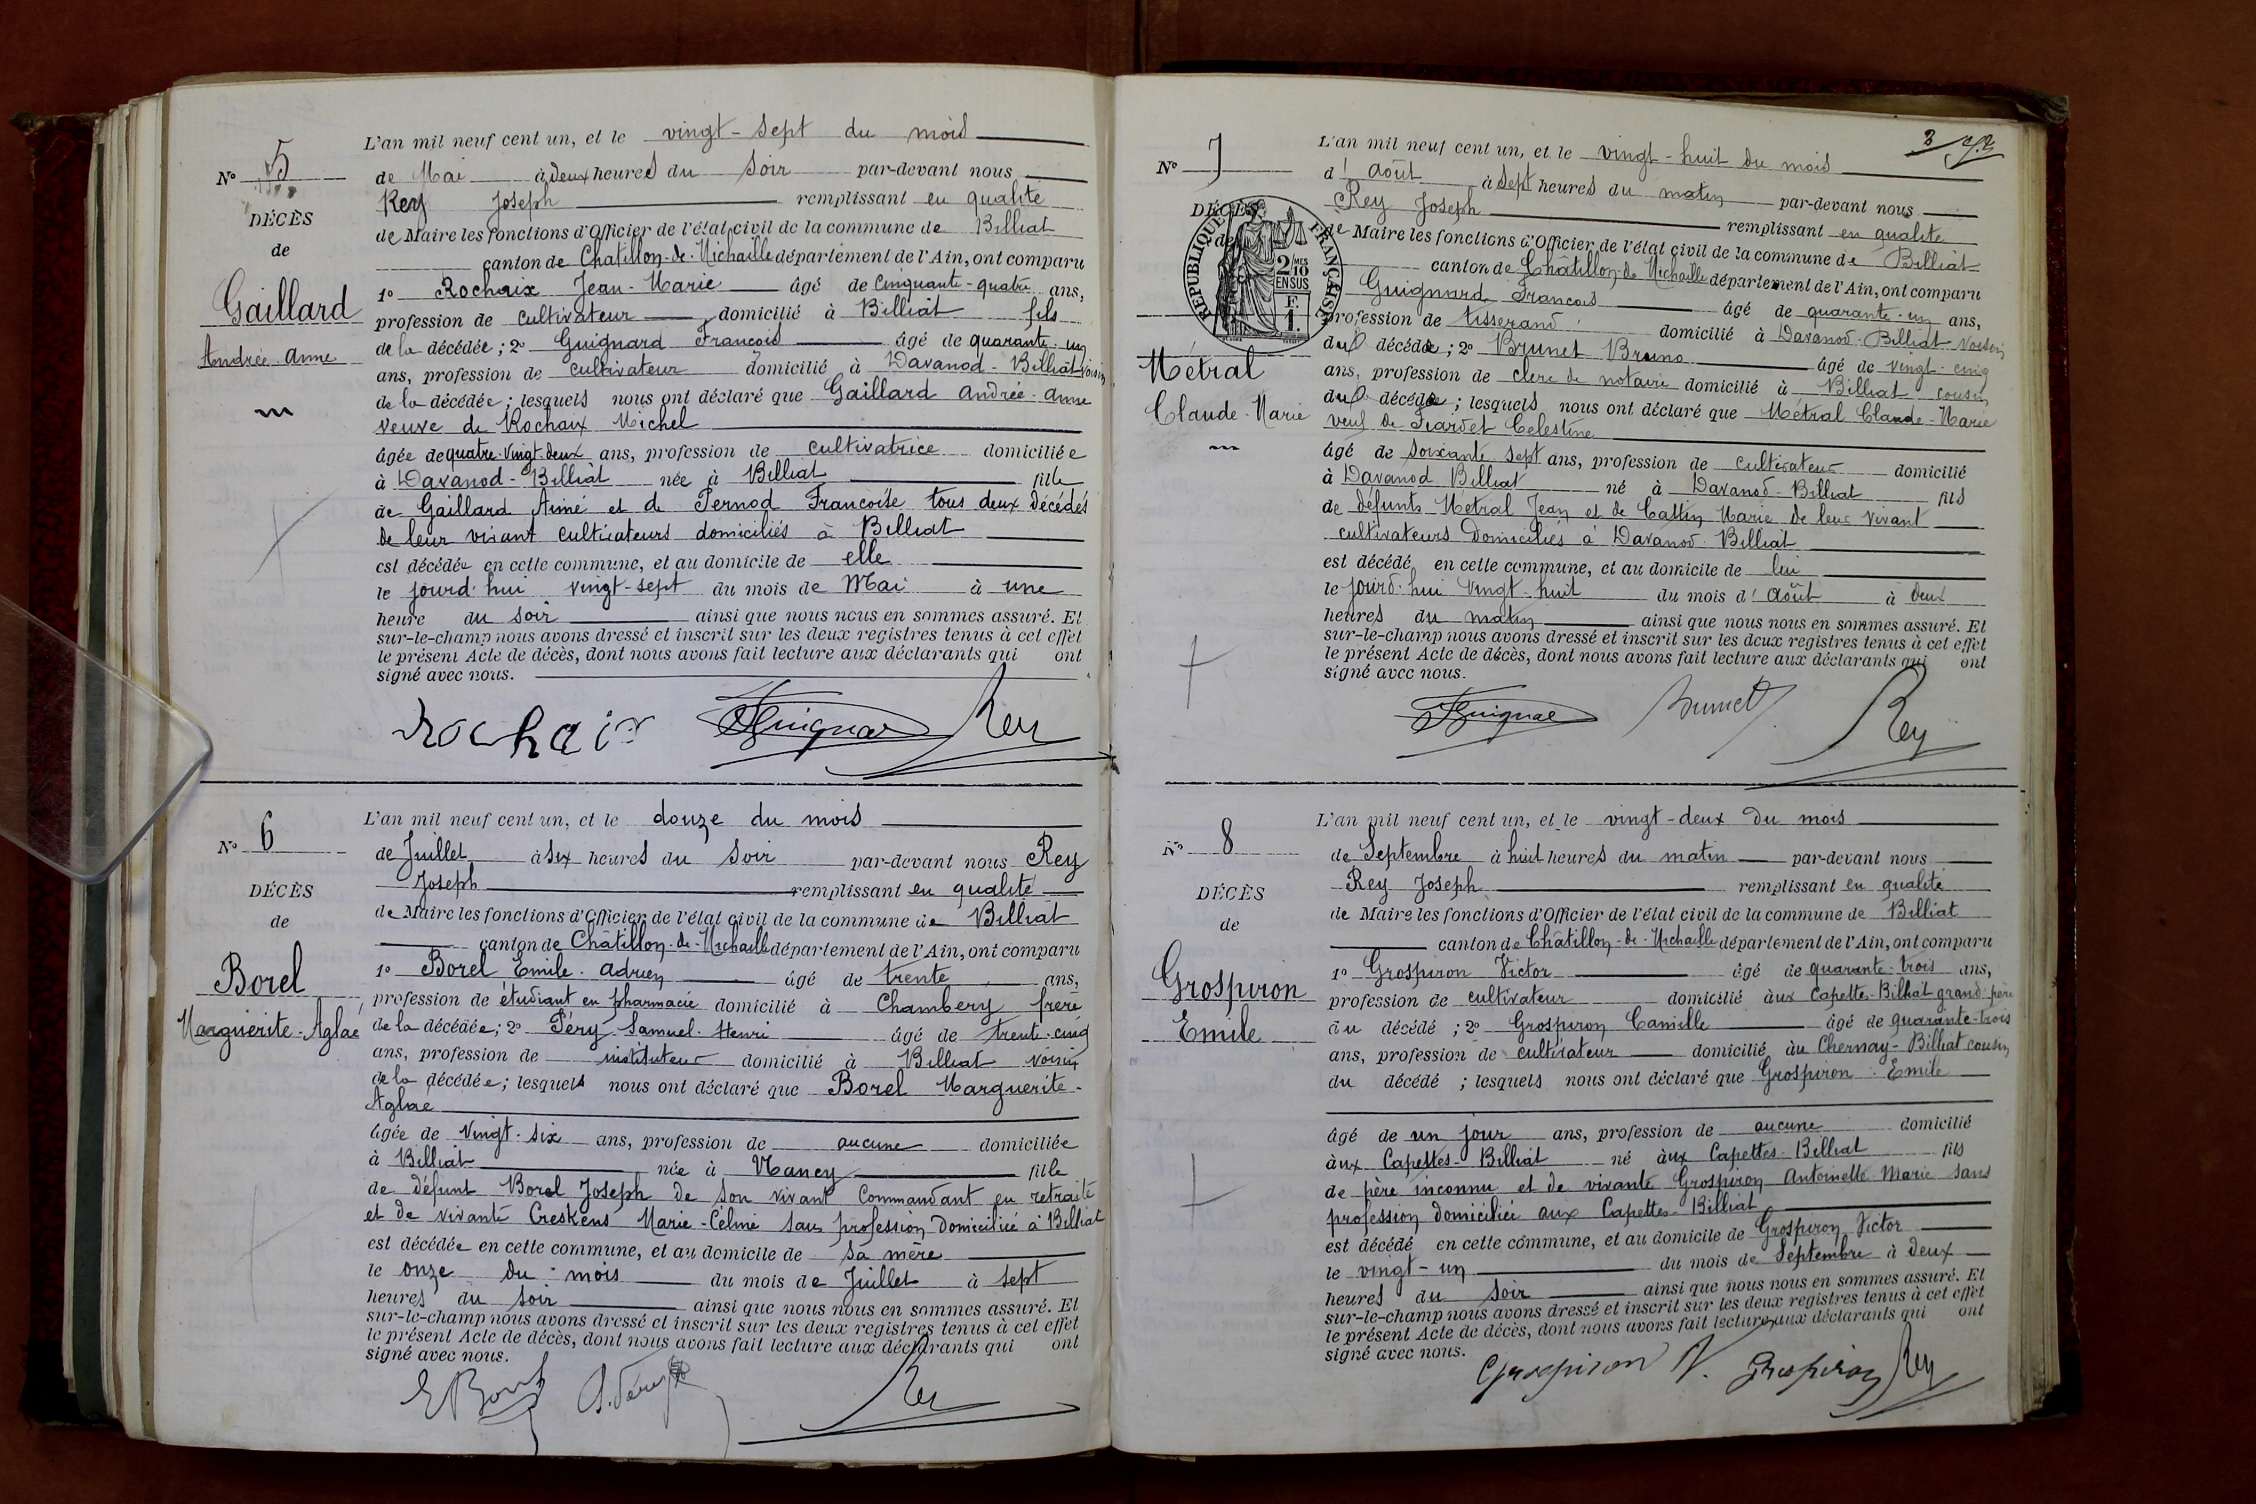 N° 5
DÉCÈS
de
Gaillard
Andrée-Anne
L'an mil neuf cent un, et le vingt-sept du mois
de Mai à deux heures du soir par-devant nous
Rey Joseph remplissant en qualité
de Maire les fonctions d'Officier de l'état civil de la commune de Billiat
canton de Chatillon-de-Michaille département de l'Ain, ont comparu
1° Rochaix Jean-Marie âgé de cinquante-quatre ans,
profession de cultivateur domicilié à Billiat fils
de la décédée; 2° Guignard François âgé de quarante-un
ans, profession de cultivateur domicilié à Davanod-Billiat voisin
de la décédée; lesquels nous ont déclaré que Gaillard Andrée-Anne
veuve de Rochaix Michel
âgée de quatre-vingt-deux ans, profession de cultivatrice domiciliée
à Davanod-Billiat née à Billiat fille
de Gaillard Aimé et de Pernod Françoise tous deux décédés
de leur vivant cultivateurs domiciliés à Billiat
est décédée en cette commune, et au domicile de elle
le jourd'hui vingt-sept du mois de Mai à une
heure du soir ainsi que nous nous en sommes assuré. Et
sur-le-champ nous avons dressé et inscrit sur les deux registres tenus à cet effet
le présent Acte de décès, dont nous avons fait lecture aux déclarants qui ont
signé avec nous.
Rochaix Guignard Rey
N° 6
DÉCÈS
de
Borel
Marguerite-Aglaé
L'an mil neuf cent un, et le douze du mois
de Juillet à six heures du soir par-devant nous Rey
Joseph remplissant en qualité
de Maire les fonctions d'Officier de l'état civil de la commune de Billiat
canton de Châtillon-de-Michaille département de l'Ain, ont comparu
1° Borel Emile-Adrien âgé de trente ans,
profession de étudiant en pharmacie domicilié à Chambery frère
de la décédée; 2° Péry Samuel-Henri âgé de trente-cinq
ans, profession de instituteur domicilié à Billiat voisin
de la décédée; lesquels nous ont déclaré que Borel Marguerite-
Aglaé
âgée de vingt-six ans, profession de aucune domiciliée
à Billiat née à Nancy fille
de défunt Borel Joseph de son vivant Commandant en retraite
et de vivante Creskens Marie-Célinie sans profession domiciliée à Billiat
est décédée en cette commune, et au domicile de sa mère
le onze du mois du mois de Juillet à sept
heures du soir ainsi que nous nous en sommes assuré. Et
sur-le-champ nous avons dressé et inscrit sur les deux registres tenus à cet effet
le présent Acte de décès, dont nous avons fait lecture aux déclarants qui ont
signé avec nous.
E Borel S. Péry Rey
3
N° 7
DÉCÈS
de
RÉPUBLIQUE FRANÇAISE
2/10 MES
EN SUS
F.
1.
Métral
Claude-Marie
L'an mil neuf cent un, et le vingt-huit du mois
d'août à sept heures du matin par-devant nous
Rey Joseph remplissant en qualité
de Maire les fonctions d'Officier de l'état civil de la commune de Billiat
canton de Châtillon-de-Michaille département de l'Ain, ont comparu
Guignard François âgé de quarante-un ans,
profession de tisserand domicilié à Davanod-Billiat voisin
du décédé; 2° Brunet Bruno âgé de vingt-cinq
ans, profession de clerc de notaire domicilié à Billiat cousin
du décédé; lesquels nous ont déclaré que Métral Claude-Marie
veuf de Tardet Celestine
âgé de soixante sept ans, profession de cultivateur domicilié
à Davanod Billiat né à Davanod-Billiat fils
de défunts Métral Jean et de Cattin Marie de leur vivant
cultivateurs domiciliés à Davanod-Billiat
est décédé en cette commune, et au domicile de lui
le jourd'hui vingt-huit du mois d'août à deux
heures du matin ainsi que nous nous en sommes assuré. Et
sur-le-champ nous avons dressé et inscrit sur les deux registres tenus à cet effet
le présent Acte de décès, dont nous avons fait lecture aux déclarants qui ont
signé avec nous.
Guignard Brunet Rey
N° 8
DÉCÈS
de
Grospiron
Emile
L'an mil neuf cent un, et le vingt-deux du mois
de Septembre à huit heures du matin par-devant nous
Rey Joseph remplissant en qualité
de Maire les fonctions d'Officier de l'état civil de la commune de Billiat
canton de Châtillon-de-Michaille département de l'Ain, ont comparu
1° Grospiron Victor âgé de quarante-trois ans,
profession de cultivateur domicilié àux Capette-Billiat grand-père
du décédé; 2° Grospiron Camille âgé de quarante-trois
ans, profession de cultivateur domicilié àu Chernay-Billiat cousin
du décédé; lesquels nous ont déclaré que Grospiron Emile
âgé de un jour ans, profession de aucune domicilié
àux Capettes-Billiat né àux Capettes-Billiat fils
de père inconnu et de vivante Grospiron Antoinette Marie sans
profession domiciliée aux Capettes-Billiat
est décédé en cette commune, et au domicile de Grospiron Victor
le vingt-un du mois de Septembre à deux
heures du soir ainsi que nous nous en sommes assuré. Et
sur-le-champ nous avons dressé et inscrit sur les deux registres tenus à cet effet
le présent Acte de décès, dont nous avons fait lecture aux déclarants qui ont
signé avec nous.
Grospiron V. Grospiron Rey